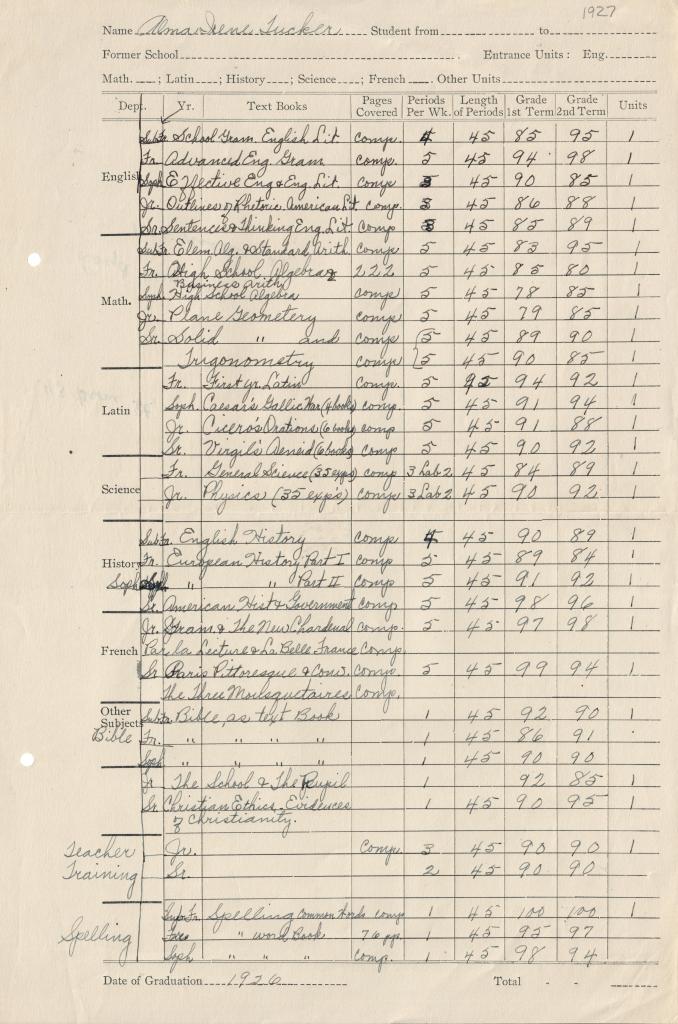 1927
Name Alma Irene Tucker Student from to
Former School Entrance Units : Eng.
Math. ; Latin ; History ; Science ; French Other Units
Dept. Yr. Text Books Pages Covered Periods Per Wk. Length of Periods Grade 1st Term Grade 2nd Term Units
English SubFr. School Gram. English Lit. comp. 4 45 85 95 1
Fr. Advanced Eng. Gram. comp. 5 45 94 98 1
Soph Effective Eng & Eng. Lit. comp 5 45 90 85 1
Jr. Outlines of Rhetoric. American Lit. comp. 45 86 88 1
Sr. Sentences & Thinking Eng. Lit. comp 45 85 89 1
Math. SubFr. Elem. Alg. & Standard Arith comp 5 45 83 95 1
Fr. High School Algebra & 222 5 45 85 80 1
Business Arith
Soph. High School Algebra comp 5 45 78 85 1
Jr. Plane Geometery comp 5 45 79 85 1
Sr. Solid " and 5 45 89 90 1
Trigonometry comp 5 45 90 85 1
Latin Fr. First yr. Latin comp. 5 45 94 92 1
Soph. Caesar's Gallic War (4 books) comp. 5 45 91 94 1
Jr. Ciceros Orations (6 books) comp 5 45 91 88 1
Sr. Virgil's Aeneid (6 books) comp 5 45 90 92 1
Science Fr. General Science (35 exps) comp 3 Lab 2 45 84 89 1
Jr. Physics (35 exp's) comp 3 Lab 2 45 90 92 1
History SubFr. English History comp 4 45 90 89 1
Fr. European History Part I comp 5 45 89 84 1
Soph " " Part II comp 5 45 91 92 1
Sr. American Hist & Government comp 5 45 98 96 1
French Jr. Gram. & The New Chardenal comp. 5 45 97 98 1
Par la Lecture & La Belle France comp.
Sr Paris Pittoresque & Comp. 5 45 99 94 1
The Three Mousquetaires Comp.
Other Subjects Bible SubFr. Bible, as text Book 1 45 92 90 1
Fr. " " " " 1 45 86 91
Soph " " " " 1 45 90 90
Jr The School & The Pupil 1 92 85 1
Sr. Christian Ethics. Evidences 1 45 90 95 1
of Christianity.
Teacher Training Jr. Comp. 3 45 90 90 1
Sr. 2 45 90 90
Spelling Fr. Spelling Common Words comp 1 45 100 100 1
" word Book 76 pp. 1 45 95 97
Soph " " " comp. 1 45 98 94
Date of Graduation 1926 Total